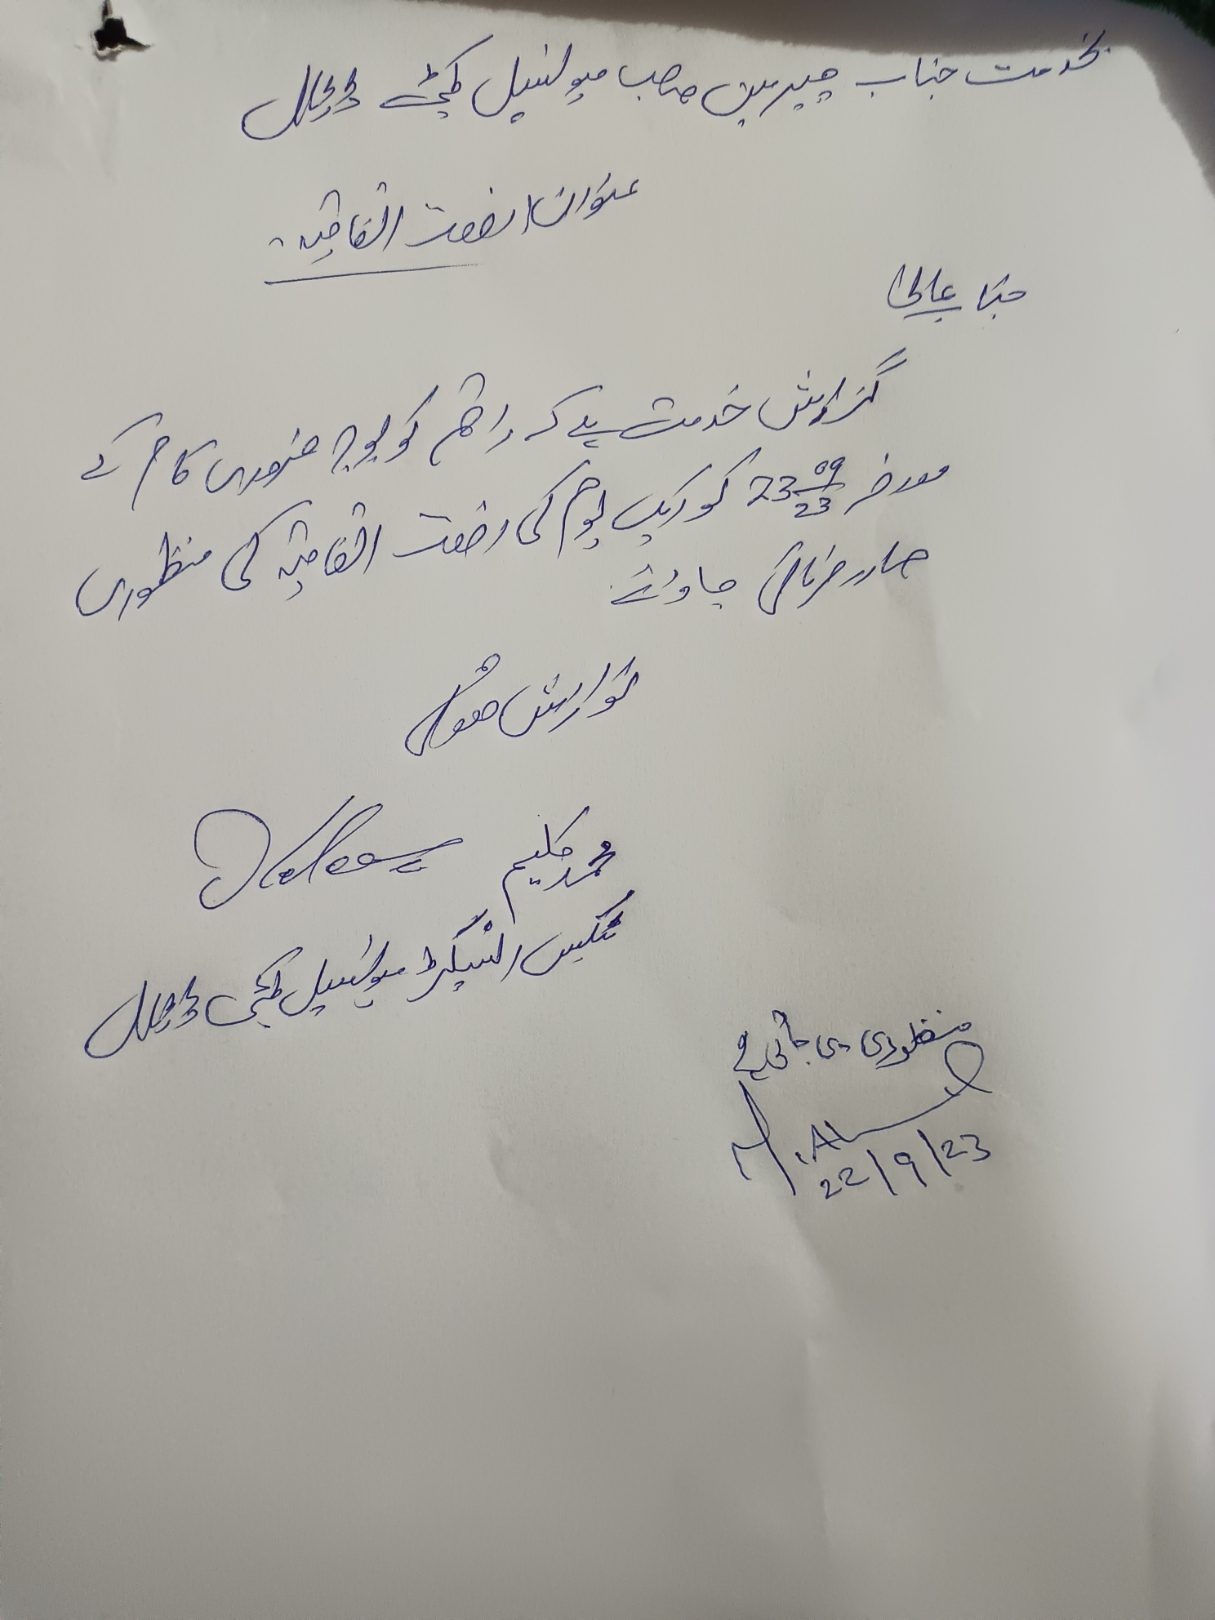 بخدمت جناب چیرمین صاحب میونسپل کمیٹی ڈڈیال
عنوان رخصت اتفاقیہ۔
جناب عالی
گزارش خدمت ہے کہ راقم کو بوجہ ضروری کام کے
مورخہ 23-09-23 کو ایک یوم کی رخصت اتفاقیہ کی منظوری
صادر فرمائی جاوئے۔
نوازش ہوگی
محمد حکیم
ٹیکس انسپکٹر میونسپل کمیٹی ڈڈیال
منظوری دی جاتی ہے
22/9/23